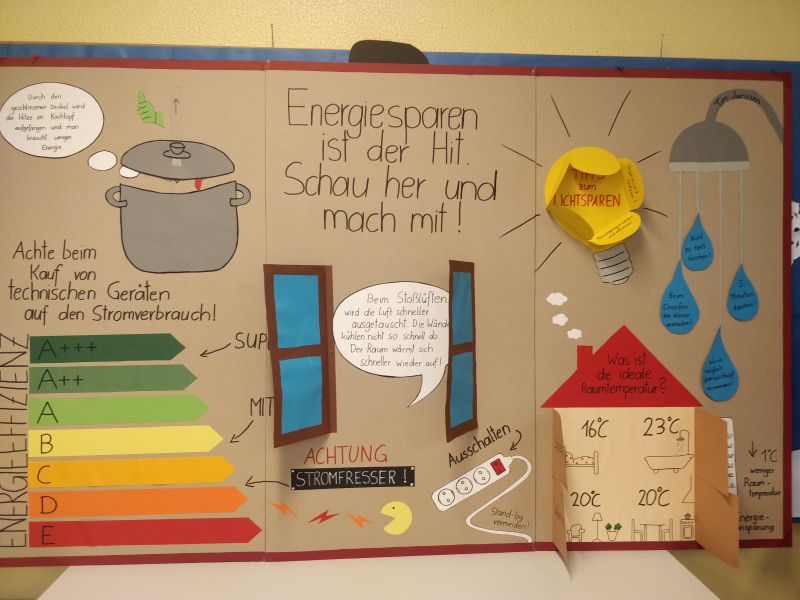 Durch den
geschlossenen Deckel wird
die Hitze im Kochtopf
aufgefangen und man
braucht weniger
Energie.
Energiesparen
ist der Hit.
Schau her und
mach mit!
TIPPS
zum
LICHTSPAREN
Tim Janssen
Nicht
zu heiß
duschen!
Beim
Einseifen
das Wasser
ausmachen!
5
Minuten
duschen!
Wenn
möglich
Sparduschkopf
verwenden!
Achte beim
Kauf von
technischen Geräten
auf den Stromverbrauch!
ENERGIEEFFIZIENZ
A+++
A++
A
B
C
D
E
SUP
MIT
ACHTUNG
STROMFRESSER!
Beim Stoßlüften
wird die Luft schneller
ausgetauscht. Die Wände
kühlen nicht so schnell ab.
Der Raum wärmt sich
schneller wieder auf!
Ausschalten
Stand-by
vermeiden!
Was ist
die ideale
Raumtemperatur?
16°C
23°C
20°C
20°C
1°C
weniger
Raum-
temperatur
nergie-
insparung